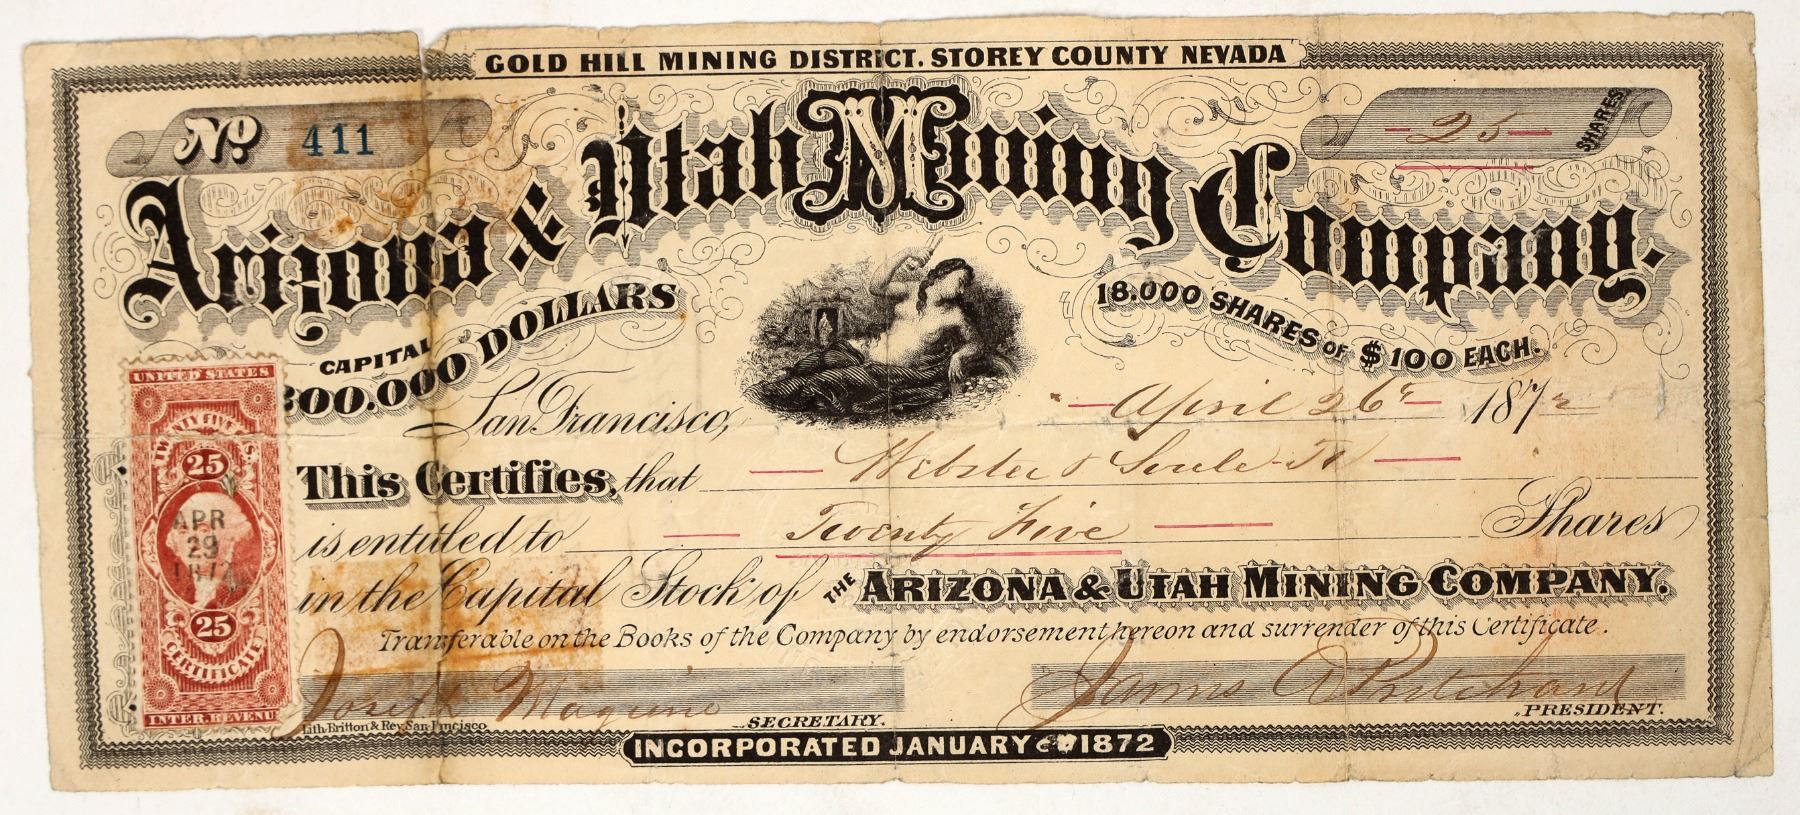 GOLD HILL MINING DISTRICT. STOREY COUNTY NEVADA
No 411
25 SHARES
Arizona & Utah Mining Company.
CAPITAL
300.000 DOLLARS
18.000 SHARES OF $100 EACH.
San Francisco, April 26 1872
This Certifies, that Webster & Soule Tr
is entitled to Twenty Five Shares
in the Capital Stock of THE ARIZONA & UTAH MINING COMPANY.
Transferable on the Books of the Company by endorsement hereon and surrender of this Certificate.
Joseph Maguire SECRETARY.
James A Pritchard PRESIDENT.
Lith. Britton & Rey San Francisco
INCORPORATED JANUARY 1872
UNITED STATES
TWENTY FIVE CTS
25
APR
29
1872
25
CERTIFICATE
INTER. REVENUE